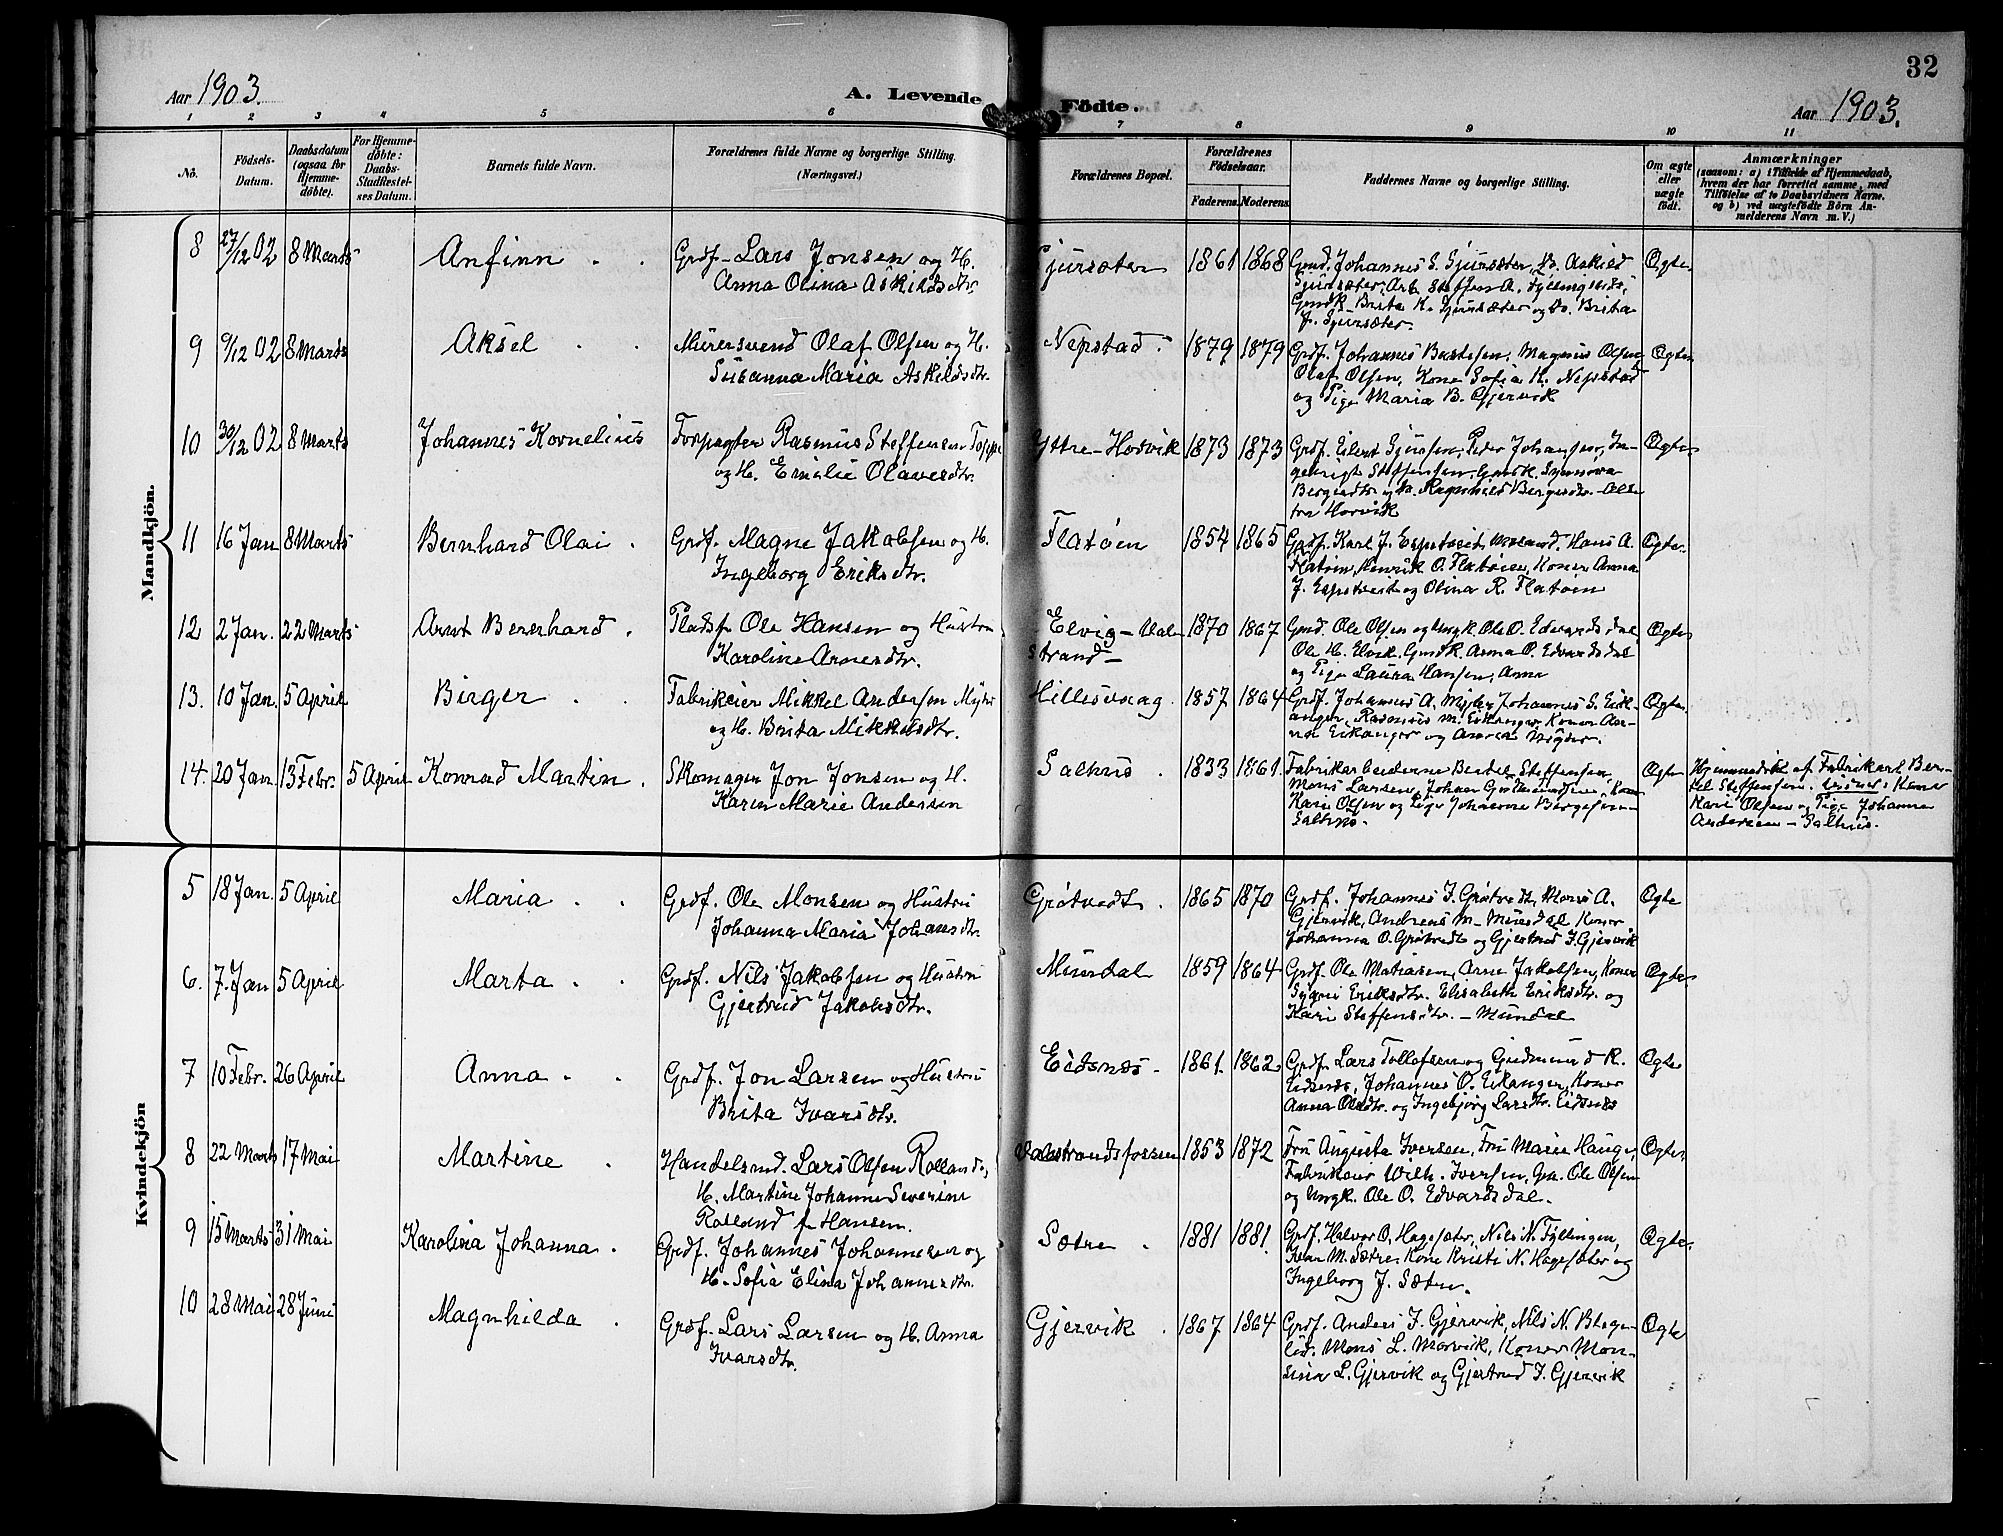 32
Aar 1903.
A. Levende Födte.
Aar 1903.
1 2 3 4 5 6 7 8 9 10 11
No.
Födsels-Datum.
Daabsdatum (ogsaa for Hjemmedöbte).
For Hjemmedöbte: Daabs-Stadfestelses Datum.
Barnets fulde Navn.
Forældrenes fulde Navne og borgerlige Stilling.
(Næringsvei.)
Forældrenes Bopæl.
Forældrenes Födselsaar.
Faderens. Moderens.
Faddernes Navne og borgerlige Stilling.
Om ægte eller uægte födt.
Anmærkninger
(saasom: a) i Tilfælde af Hjemmedaab,
hvem der har forrettet samme, med
Tilföielse af to Daabsvidners Navne.
og b) ved uægtefödte Börn An-
melderens Navn m. V.)
Mandkjön.
8 27/12 02 8 Marts Anfinn Grdf. Lars Jonsen og H. Gjursæter 1861 1868 Gmd. Johannes S. Gjursæter, Askild
Anna Olina Askildsdtr.
Gmdk Brita K. Gjursæter og Brita
J. Gjursæter.
Ogte
9 9/12 02 8 Marts Aksel Murersvend Olaf Olsen og H. Nepstad 1879 1879 Grdf. Johannes Magnus Olsen
Susanna Maria Askildsdtr. Olaf Olsen, Kone Sofia K. Nepstad
og Pige Maria B. Gjervik
Ogte
10 30/12 02 8 Marts Johannes Kornelius Forpagter Rasmus Steffensen Toppe Yttre-Hordvik 1873 1873 Grdf. Peder Johansen, In-
og H. Emilie Olavesdtr. gebrigt Steffensen, Gmdk.
Ogte
11 16 Jan 8 Marts Bernhard Olai Grdf. Magne Jakobsen og H. Flatöen 1854 1865 Grdf. Karl J. Hans A.
Ingeborg Eriksdtr. Flatöen, Henrik O. Flatöien, Koner Anna
J. og Olina R. Flatöen
Ogte
12 2 Jan. 22 Marts Arnt Bernhard Pladsf. Ole Hansen og Hustru Elvig-Val 1870 1867 Gmd. Ole Olsen og Ungk. Ole O. Edvardsdal
Karoline Arnesdtr. strand Ole H. Elvik, Gmdk. Anna O. Edvardsdal
og Pige Laura Hansen,
Ogte
13. 10 Jan. 5 April Birger Fabrikeier Mikkel Andersen Mjster Hillesvaag 1857 1864 Grdf. Johannes A. Johannes S. Eik-
og H. Brita Mikkelsdtr. anger, Rasmus M. Eikanger, Koner An-
na Eikanger og
Ogte
14. 20 Jan. 13 Febr. 5 April Konrad Martin Skomager Jon Jonsen og H. Salhus 1833 1861 Fabrikarbeiderne Bertel Steffensen,
Karen Marie Andersen Mons Larsen, Johan Kone
Kari Olsen og Pige Johanne Bergesen
Salhus.
Ogte
Hjemmedöbt af Fabrikarb. Ber-
tel Steffensen. Vidner: Kone
Kari Olsen og Pige Johanne
Andersen - Salhus.
Kvindekjön
5 18 Jan. 5 April Maria Grdf. Ole Monsen og Hustru Grötvedt 1865 1870 Grdf. Johannes J. Grötvedt, Mons A.
Johanna Maria Johansdtr. Gjervik, Andreas M. Mundal Koner
Johanna O. Grötvedt og Gjertrud J. Gjervik
Ogte
6. 7. Jan 5 April Marta Grdf. Nils Jakobsen og Hustru Mundal 1859 1864 Grdf. Ole Matiasen, Arne Jakobsen, Koner
Gjertrud Jakobsdtr. Sygni Eriksdtr. Elisabeth Eriksdtr. og
Kari Steffensdtr. - Mundal
Ogte
7 10 Febr. 26 April Anna Grdf. Jon Larsen og Hustru Eidsnes 1861 1862 Grdf. Lars Tollefsen og Gudmund R.
Brita Ivarsdtr. Eidsnes, Johannes O. Eikanger, Koner
Anna Olsdtr. og Ingebjörg Larsdtr. Eidsnes
Ogte
8 22 Marts 17 Mai Martine Handelsmd. Lars Olsen Rolland, Valestrandsfossen 1853 1872 Fru Augusta Iversen, Fru Marie Hauge,
H. Martine Johanne Severine Fabrikeier Wilh. Iversen, Ole Olsen
Rolland f. Hansen. og Ungk. Ole O. Edvardsdal.
Ogte
9 15 Marts 31 Mai Karolina Johanna Grdf. Johannes Johannesen og Sætre 1881 1881 Grdf. Halvor O. Hagesæter, Nils N. Fyllingen,
H. Sofia Elina Johannesdtr. Ivar M. Sætre, Kone Kristi N. Hagesæter og
Ingeborg J. Sætre.
Ægte
10 28 Mai 28 Juni Magnhilda Grdf. Lars Larsen og H. Anna Gjervik 1867 1864 Grdf. Anders J. Gjervik, Nils N.
Ivarsdtr. Mons L. Koner Mon-
sina L. Gjervik og Gjertrud J. Gjervik
Ogte